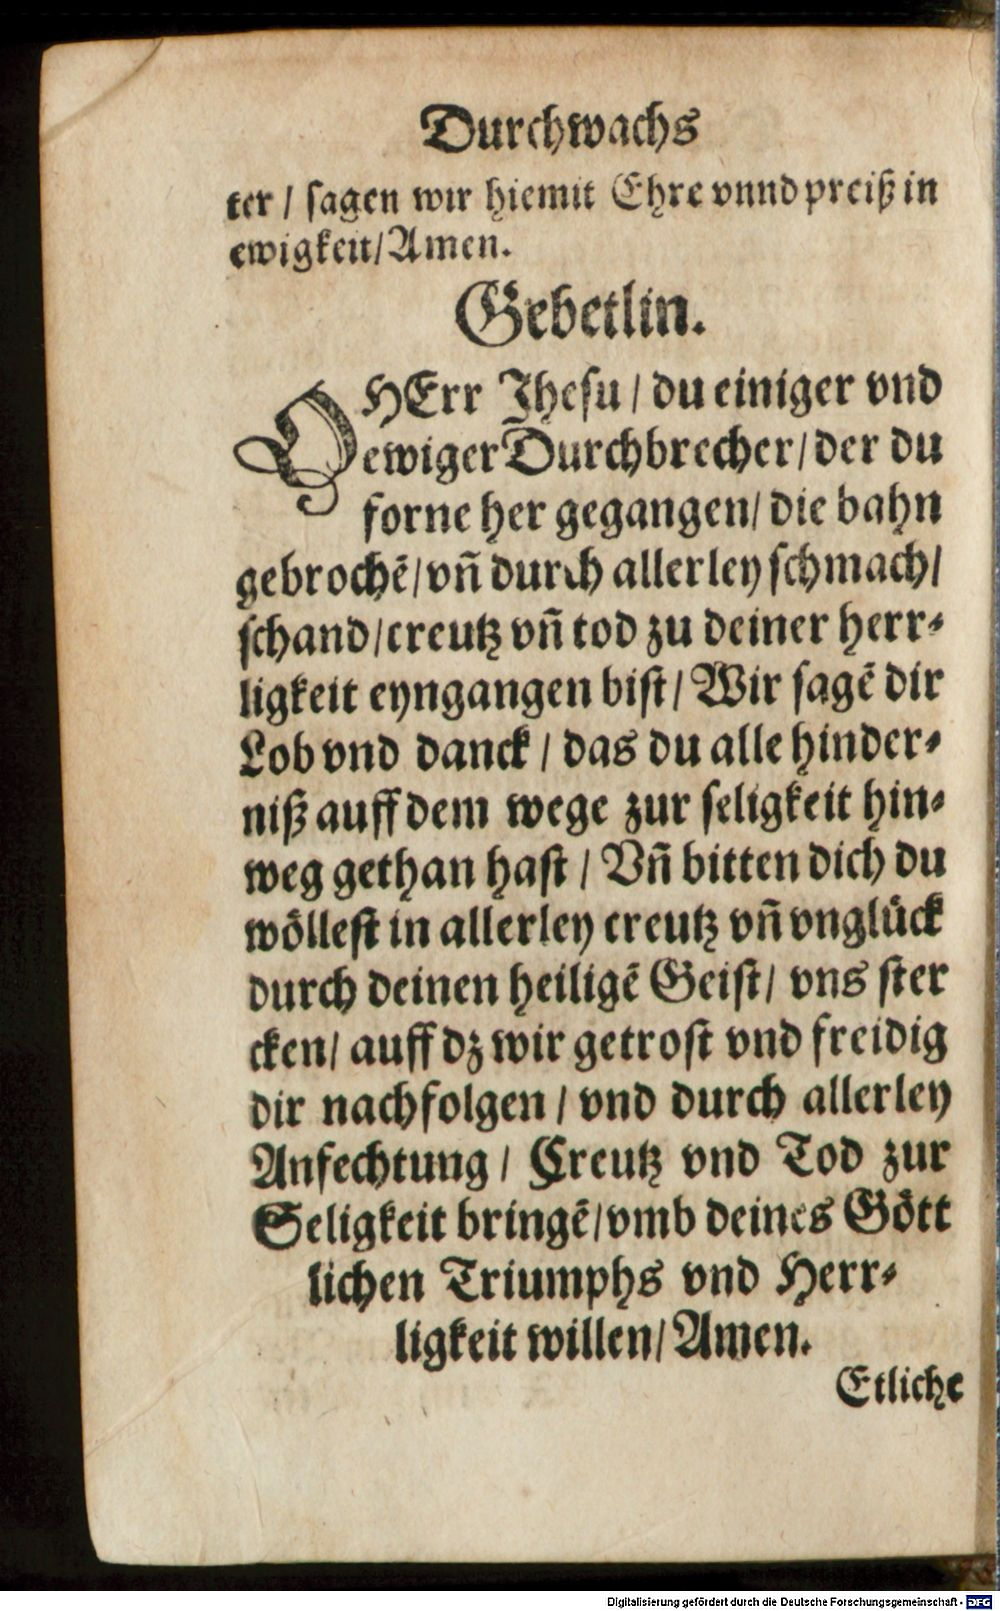 Durchwachs
ter / sagen wir hiemit Ehre vnnd preiß in
ewigkeit / Amen.
Gebetlin.
O HErr Jhesu / du einiger vnd
ewiger Durchbrecher / der du
forne her gegangen / die bahn
gebrochē / vñ durch allerley schmach /
schand / creutz vñ tod zu deiner herr⸗
ligkeit eyngangen bist / Wir sagē dir
Lob vnd danck / das du alle hinder⸗
niß auff dem wege zur seligkeit hin⸗
weg gethan hast / Vñ bitten dich du
wöllest in allerley creutz vñ vnglück
durch deinen heiligē Geist / vns ster
cken / auff dz wir getrost vnd freidig
dir nachfolgen / vnd durch allerley
Anfechtung / Creutz vnd Tod zur
Seligkeit bringē / vmb deines Gött
lichen Triumphs vnd Herr⸗
ligkeit willen / Amen.
Etliche
Digitalisierung gefördert durch die Deutsche Forschungsgemeinschaft - DFG